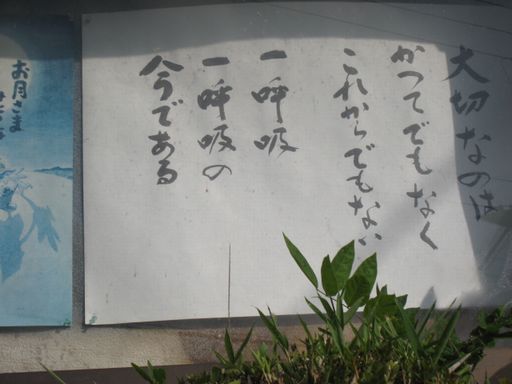 大切なのは
かつてでもなく
これからでもない
一呼吸
一呼吸の
今である
お月さま